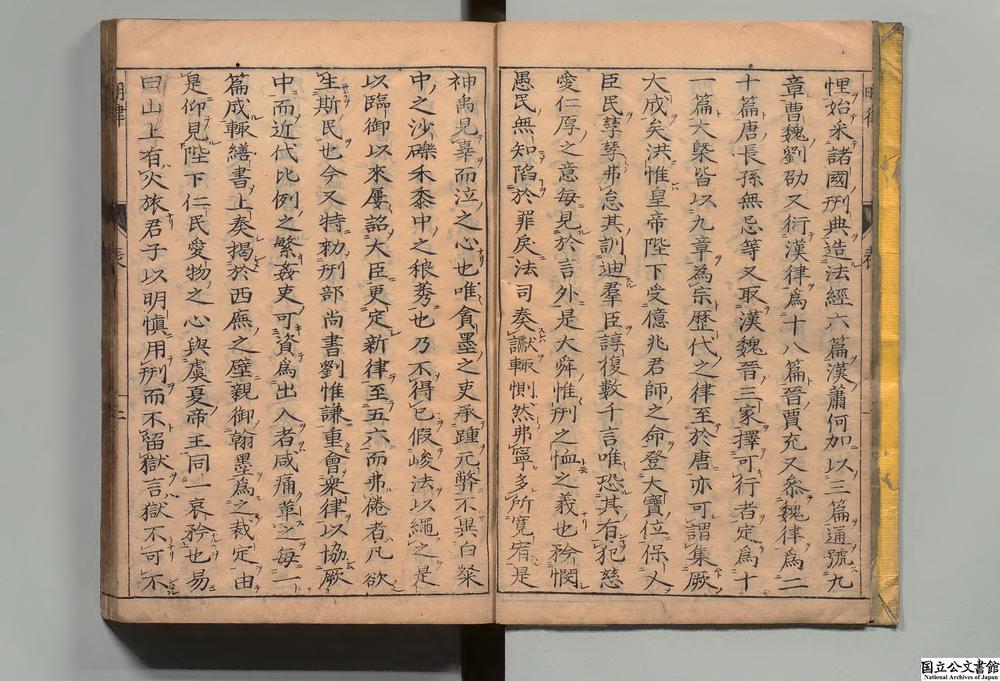 悝始采諸國刑典造法經六篇漢蕭何加以三篇通號九
章曹魏劉劭又衍漢律爲十八篇晉賈充又叅魏律爲二
十篇唐長孫無忌等又取漢魏晉三家擇可行者定爲十
一篇大槩皆以九章為宗歷代之律至於唐亦可謂集厥
大成矣洪惟皇帝陛下受億兆君師之命登大寶位保乂
臣民孳孳弗怠其訓迪羣臣諄復數千言唯恐其有犯慈
愛仁厚之意每見於言外是大舜惟刑之恤之義也矜憫
愚民無知陷於罪戾法司奏讞輒惻然弗寧多所寬宥是
神禹見辜而泣之心也唯貪墨之吏承踵元弊不與白粲
中之沙礫禾黍中之稂莠也乃不得已假峻法以繩之是
以臨御以來屢詔大臣更定新律至五六而弗倦者凡欲
生斯民也今又特勑刑部尚書劉惟謙重會衆律以協厥
中而近代比例之繁姦吏可資爲出入者咸痛革之每一
篇成輒繕書上奏揭於西廡之壁親御翰墨爲之裁定由
是仰見陛下仁民愛物之心與虞夏帝王同一哀矜也易
曰山上有火旅君子以明愼用刑而不留獄言獄不可不
明律
表
二
国立公文書館
National Archives of Japan